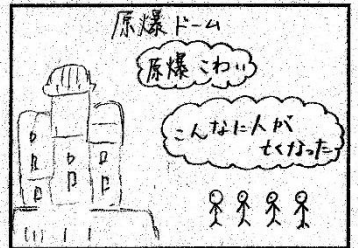 原爆ドーム
原爆こわい
こんなに人が
亡くなった